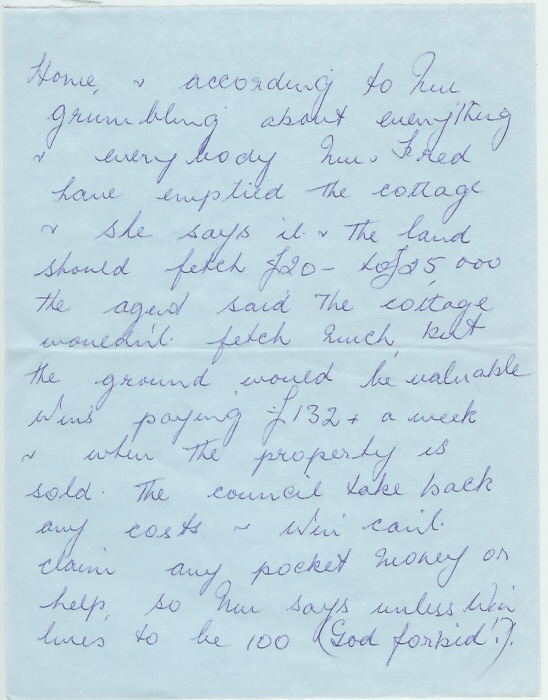 Home, & according to Nue
grumbling about everything
& everybody Nue & Fred
have emptied the cottage
& she says it & the land
should fetch £20- to £25,000
the agent said the cottage
wouldn't fetch much, but
the ground would be valuable
Win's paying £132+ a week
& when the property is
sold. The council take back
any costs & Win can't
claim any pocket money or
help, so Nue says unless Win
lives to be 100 (God forbid!?).